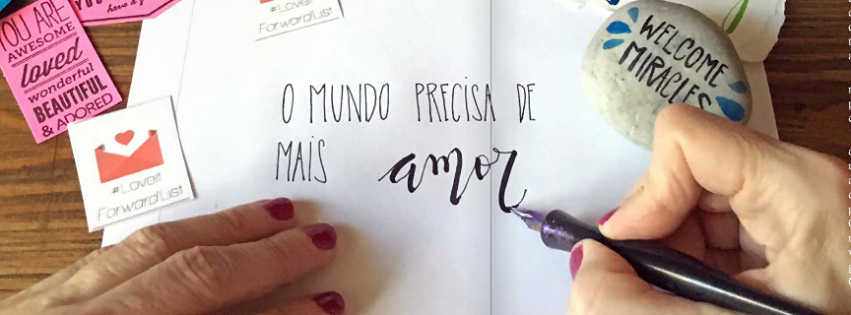 YOU ARE
AWESOME
loved
wonderful
BEAUTIFUL
& ADORED
#LoveIt
ForwardList
#LoveIt
ForwardList
O MUNDO PRECISA DE
MAIS amor
WELCOME
MIRACLES